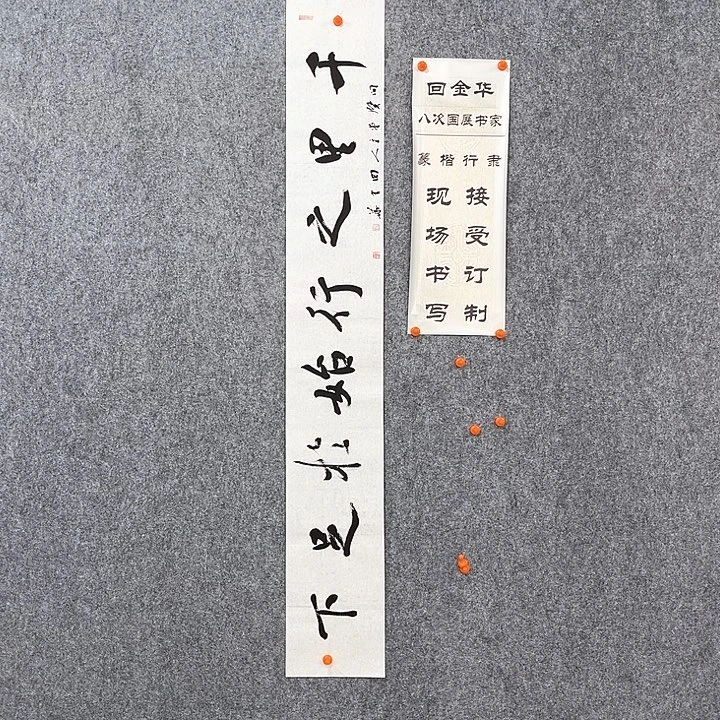 千里之行始於足下
回金华
八次国展书家
篆楷行隶
现场书写
接受订制